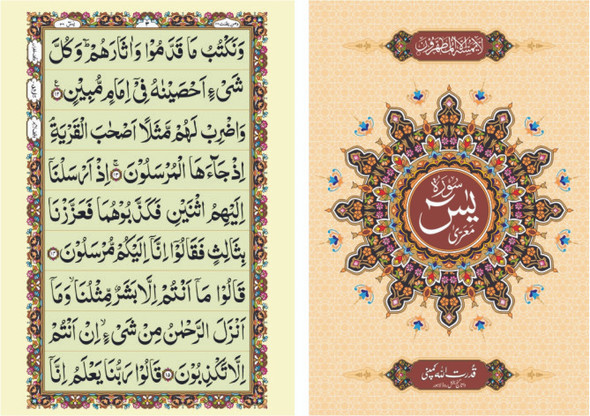 وَنَكْتُبُ مَا قَدَّمُوْا وَاٰثَارَهُمْ ۛ وَكُلَّ
شَىْءٍ اَحْصَيْنٰهُ فِىْٓ اِمَامٍ مُّبِيْنٍ ۝۱۲
وَاضْرِبْ لَهُمْ مَّثَلًا اَصْحٰبَ الْقَرْيَةِ ۘ
اِذْ جَآءَهَا الْمُرْسَلُوْنَ ۝۱۳ اِذْ اَرْسَلْنَآ
اِلَيْهِمُ اثْنَيْنِ فَكَذَّبُوْهُمَا فَعَزَّزْنَا
بِثَالِثٍ فَقَالُوْٓا اِنَّآ اِلَيْكُمْ مُّرْسَلُوْنَ ۝۱۴
قَالُوْا مَآ اَنْتُمْ اِلَّا بَشَرٌ مِّثْلُنَا ۙ وَمَآ
اَنْزَلَ الرَّحْمٰنُ مِنْ شَىْءٍ ۙ اِنْ اَنْتُمْ
اِلَّا تَكْذِبُوْنَ ۝۱۵ قَالُوْا رَبُّنَا يَعْلَمُ اِنَّآ
لَا يَمَسُّهٗٓ اِلَّا الْمُطَهَّرُوْنَ
سورہ
یٰسٓ
معرّٰی
قدرت اللہ کمپنی